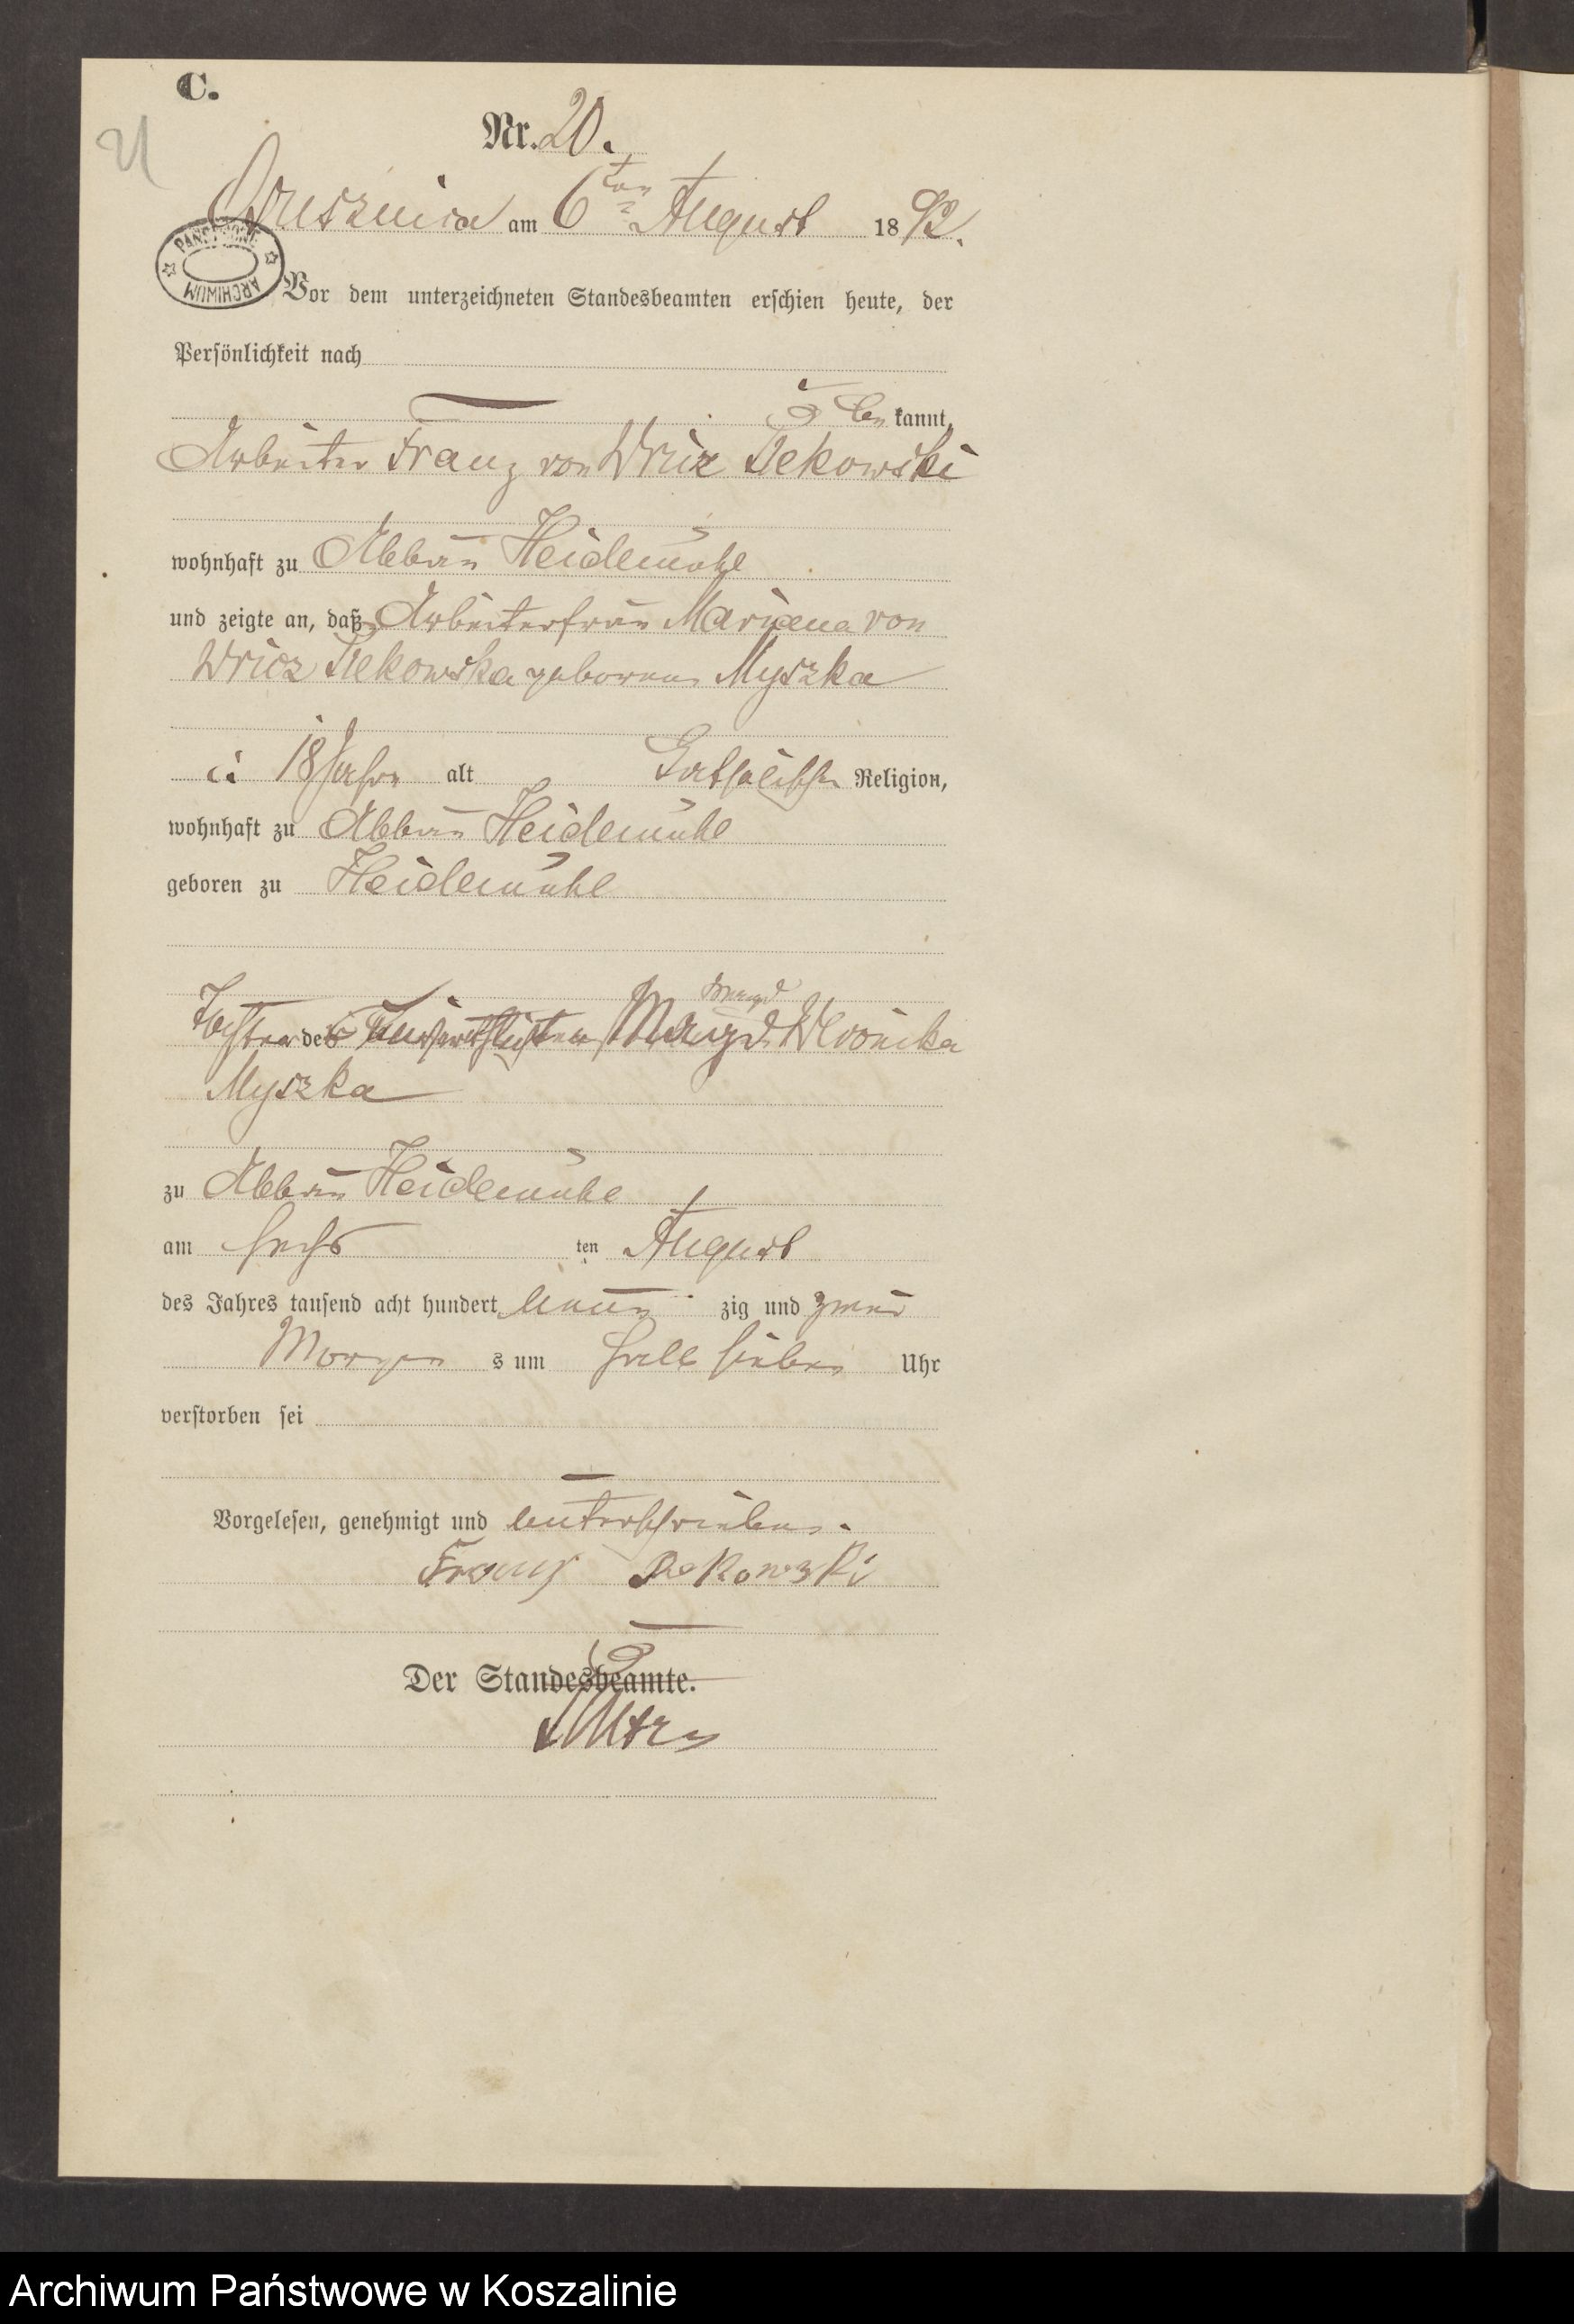 C.
Nr. 20.
21
Grusznica am 6ten August 1892.
PAŃSTWOWE ARCHIWUM
Vor dem unterzeichneten Standesbeamten erschien heute, der
Persönlichkeit nach
be kannt,
Arbeiter Franz von Wricz Rekowski
wohnhaft zu Abbau Heidemühl
und zeigte an, daß Arbeiterfrau Mariana von
Wricz Rekowska geborene Myszka
18 Jahre alt Katholischer Religion,
wohnhaft zu Abbau Heidemühl
geboren zu Heidemühl
Tochter der Magd Weronika
Myszka
zu Abbau Heidemühl
am sechs ten August
des Jahres tausend acht hundert neun zig und zwei
Morgen s um halb sieben Uhr
verstorben sei
Vorgelesen, genehmigt und unterschrieben.
Franz Rekowski
Der Standesbeamte.
Archiwum Państwowe w Koszalinie